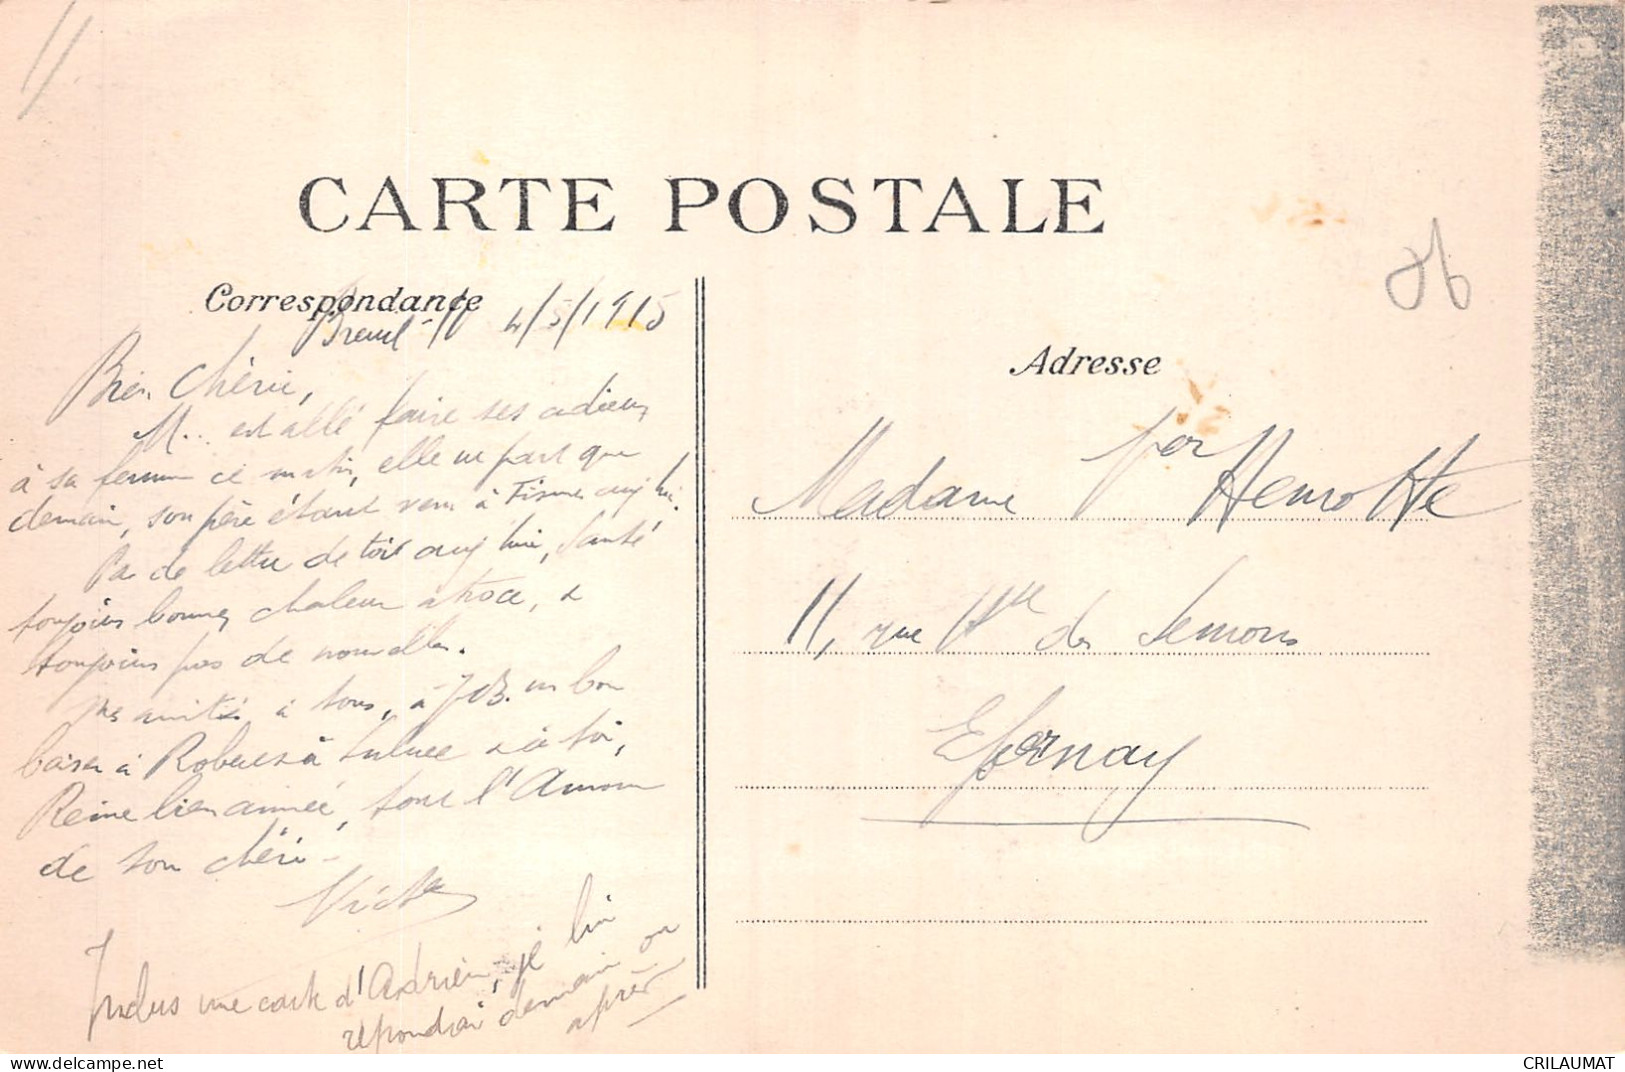 CARTE POSTALE
Correspondance
Breuil 4/5/1915
Adresse
Bien Chérie,
M... est allé faire ses adieux
à sa femme ce matin, elle ne part que
demain, son père étant venu à Fismes auj hui.
Pas de lettre de toi auj hui, Santé
toujours bonne, chaleur atroce, &
toujours pas de nouvelles.
Mes amitiés à tous, à JB. un bon
baiser à Robert & à & à toi,
Reine bien aimée, tout l'Amour
de ton chéri -
Victor
Inclus une carte d'Adrien, je lui
répondrai demain ou
après
Madame Henrotte
11, rue des Semons
Epernay
CRILAUMAT